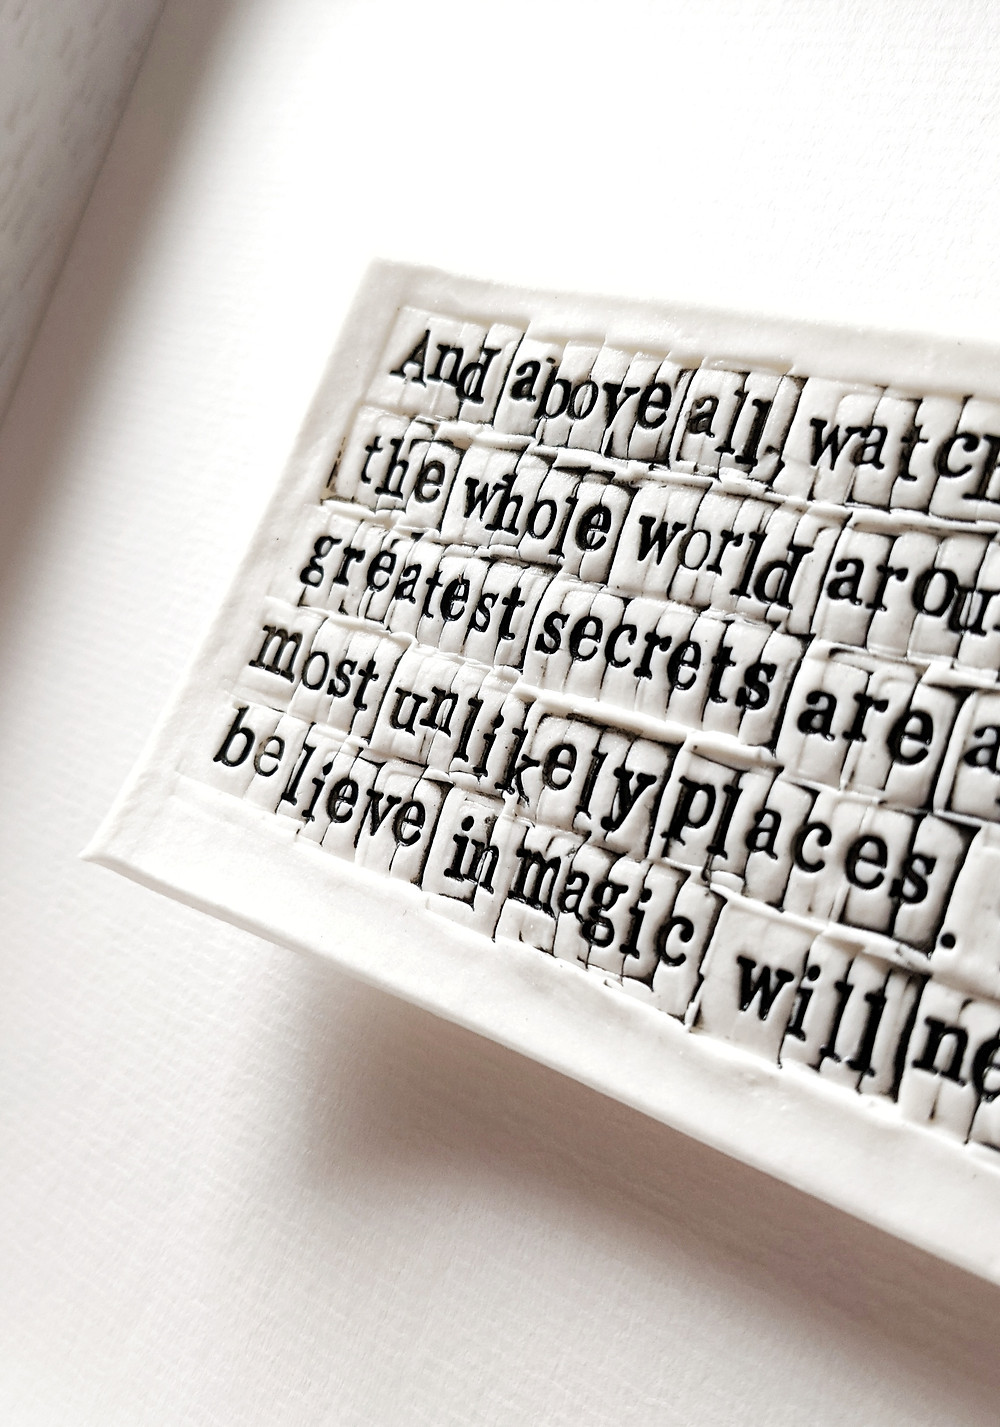 And above all, watch
the whole world arou
greatest secrets are a
most unlikely places.
believe in magic will ne